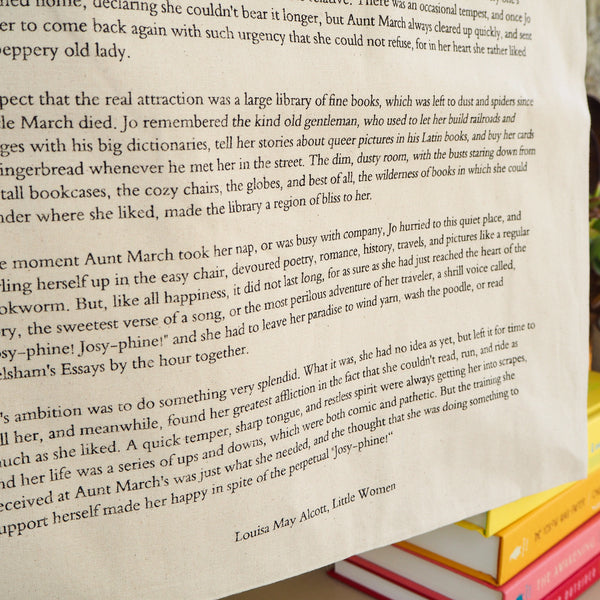 home, declaring she couldn't bear it longer, but Aunt March always cleared up quickly, and sent
There was an occasional tempest, and once Jo
er to come back again with such urgency that she could not refuse, for in her heart she rather liked
peppery old lady.
pect that the real attraction was a large library of fine books, which was left to dust and spiders since
le March died. Jo remembered the kind old gentleman, who used to let her build railroads and
ges with his big dictionaries, tell her stories about queer pictures in his Latin books, and buy her cards
ingerbread whenever he met her in the street. The dim, dusty room, with the busts staring down from
tall bookcases, the cozy chairs, the globes, and best of all, the wilderness of books in which she could
nder where she liked, made the library a region of bliss to her.
e moment Aunt March took her nap, or was busy with company, Jo hurried to this quiet place, and
rling herself up in the easy chair, devoured poetry, romance, history, travels, and pictures like a regular
okworm. But, like all happiness, it did not last long, for as sure as she had just reached the heart of the
ory, the sweetest verse of a song, or the most perilous adventure of her traveler, a shrill voice called,
osy-phine! Josy-phine!" and she had to leave her paradise to wind yarn, wash the poodle, or read
elsham's Essays by the hour together.
's ambition was to do something very splendid. What it was, she had no idea as yet, but left it for time to
ll her, and meanwhile, found her greatest affliction in the fact that she couldn't read, run, and ride as
much as she liked. A quick temper, sharp tongue, and restless spirit were always getting her into scrapes,
nd her life was a series of ups and downs, which were both comic and pathetic. But the training she
eceived at Aunt March's was just what she needed, and the thought that she was doing something to
upport herself made her happy in spite of the perpetual "Josy-phine!"
Louisa May Alcott, Little Women
THE AWAKENING
OUTSIDER